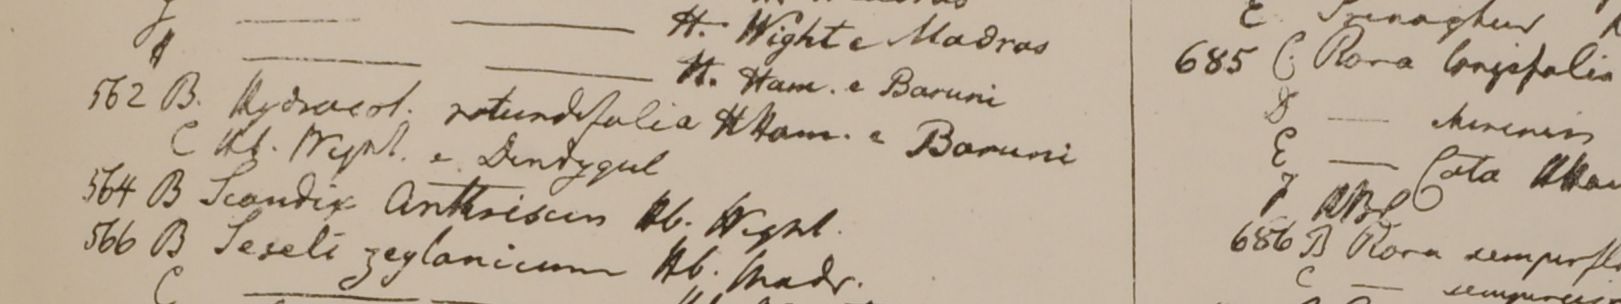 H. Wight e Madras
H. Ham. e Baruni
562 B. Hydrocot. rotundifolia HHam. e Baruni
C Hb. Wight. e Dindygul
564 B Scandix Anthriscus Hb. Wight.
566 B Seseli zeylanicum Hb. Madr.
C
E. Srinaghur
685 C. Rosa longifolia
D — chinensis
E —
F HBC
686 B Rosa sempervirens
C — sempervirens